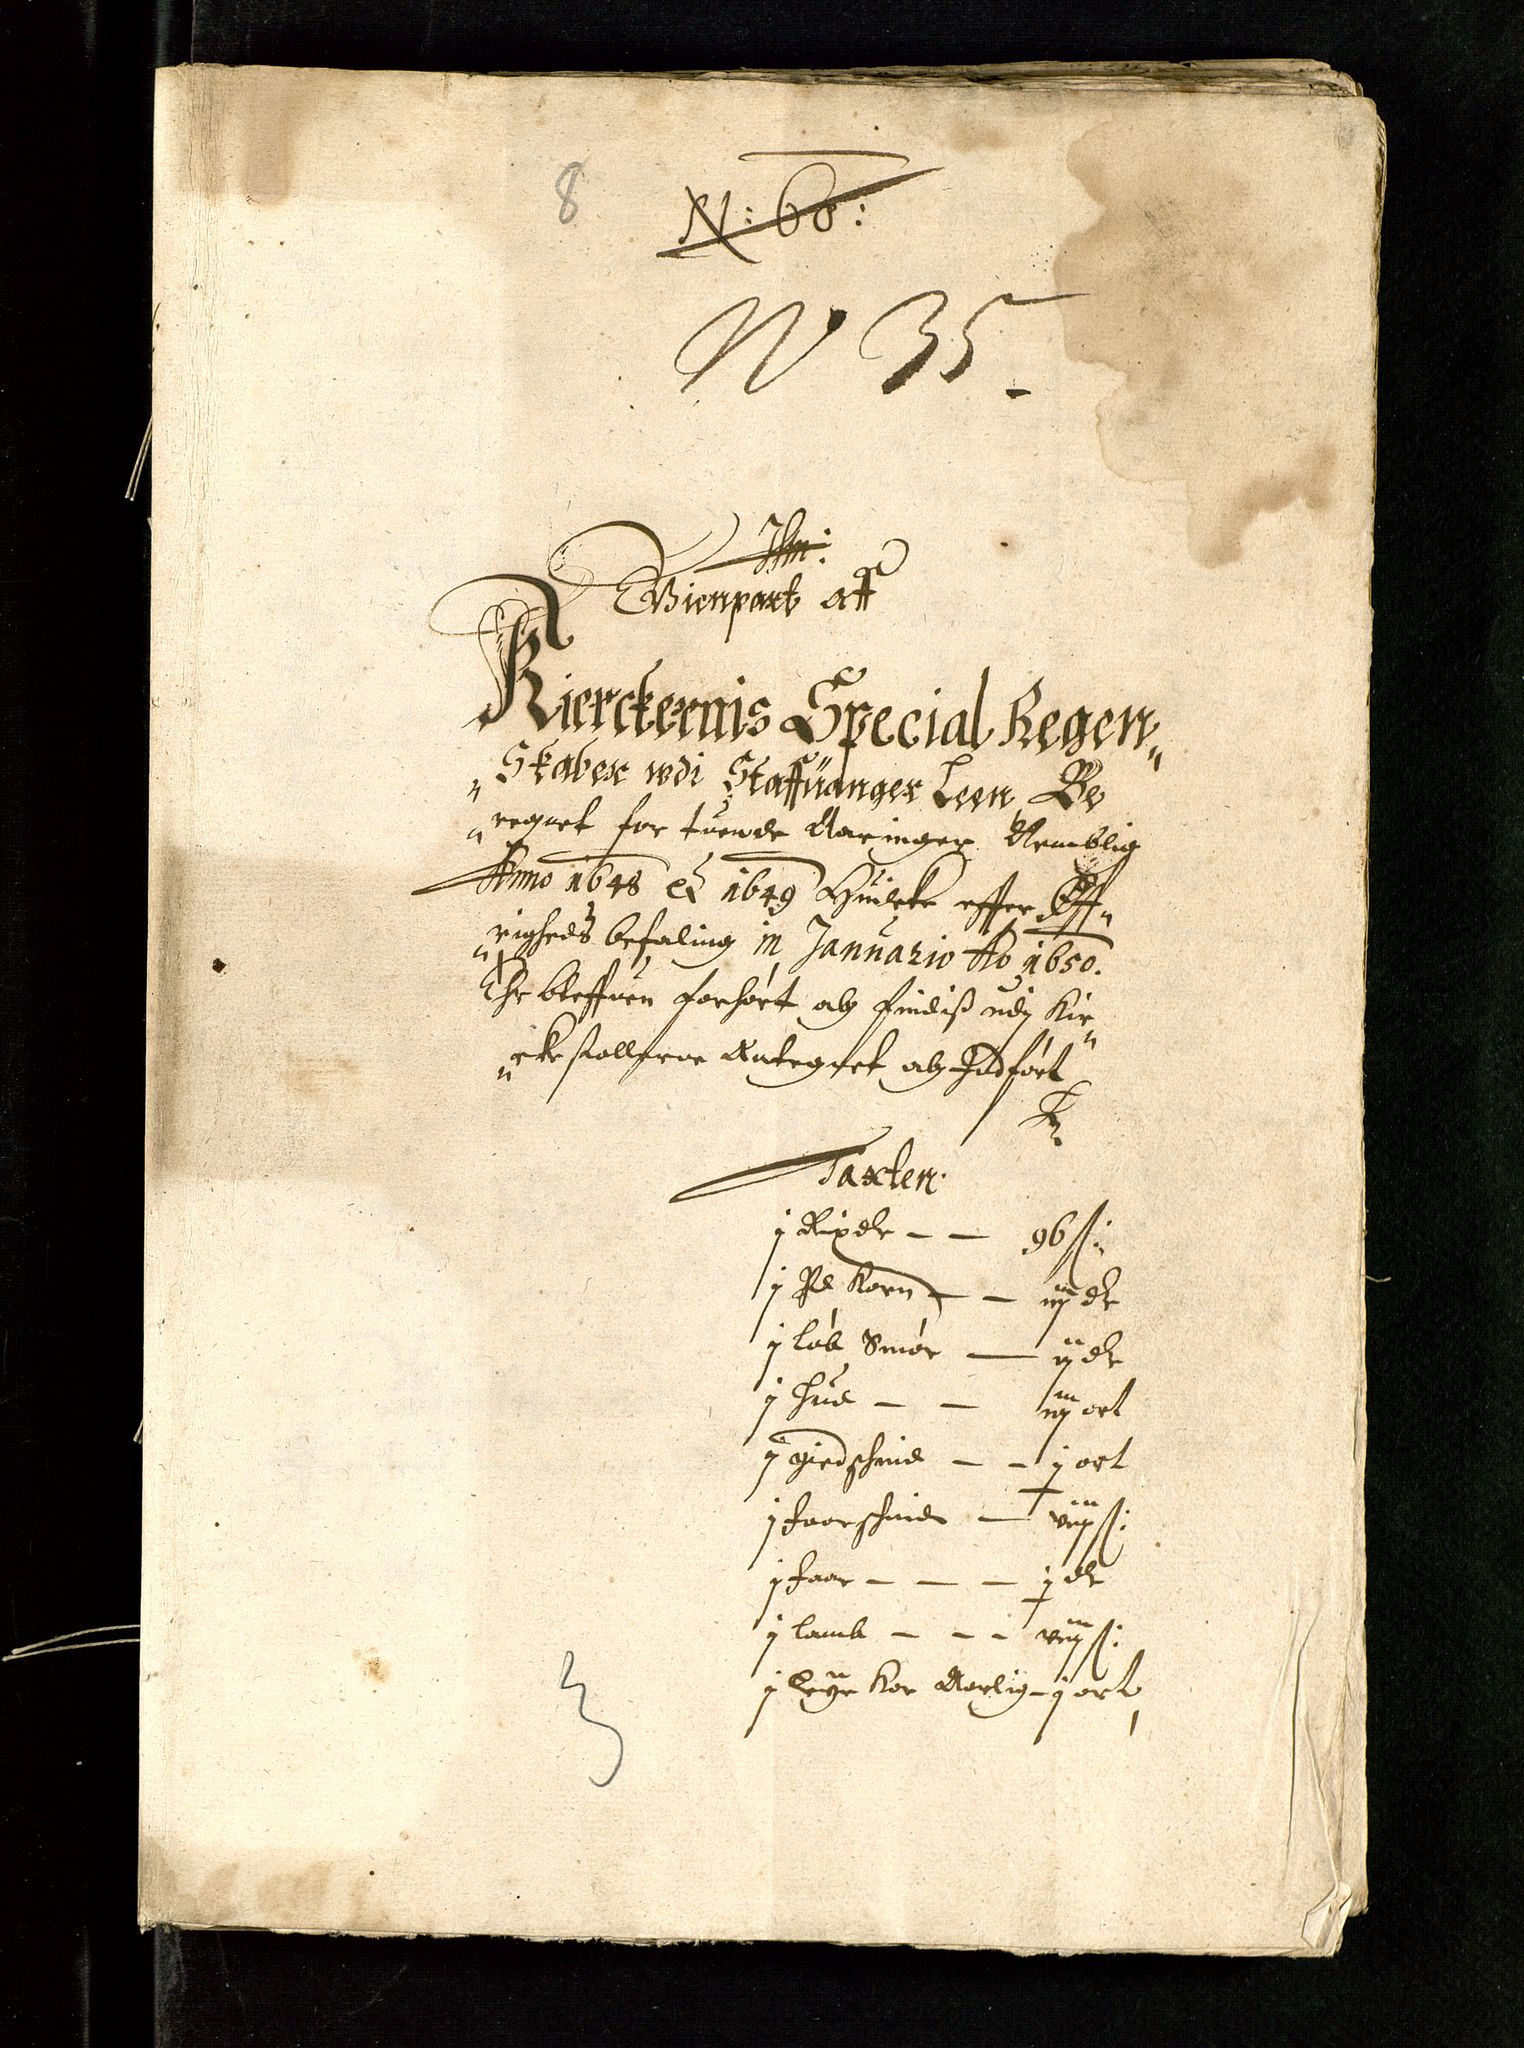 8
N: 60:
No 35.
Ihn:
Gienpart aff
Kierckernis Special Regen„
„Skaber wdi Staffuanger Leen, Be
„regnet for tuende Aaringer Nemblig
Anno 1648 & 1649 Huilcke effter Øff„
„righeds befaling in Januario Ao 1650.
Ehr bleffuen forhørt och findis udj Kir„
„ckestollerne Antegnet och Indført
Taxten.
j Rixdr — — 96 ß:
j Pd Korn — — iij dr
j løb Smør — ij dr
j hud — — iij ort
j giedschind — — j ort
j faarschind — viij ß:
j faar — — — j dr
j lamb — — — viij ß:
j Leye Koe Aarlig — j ort
3